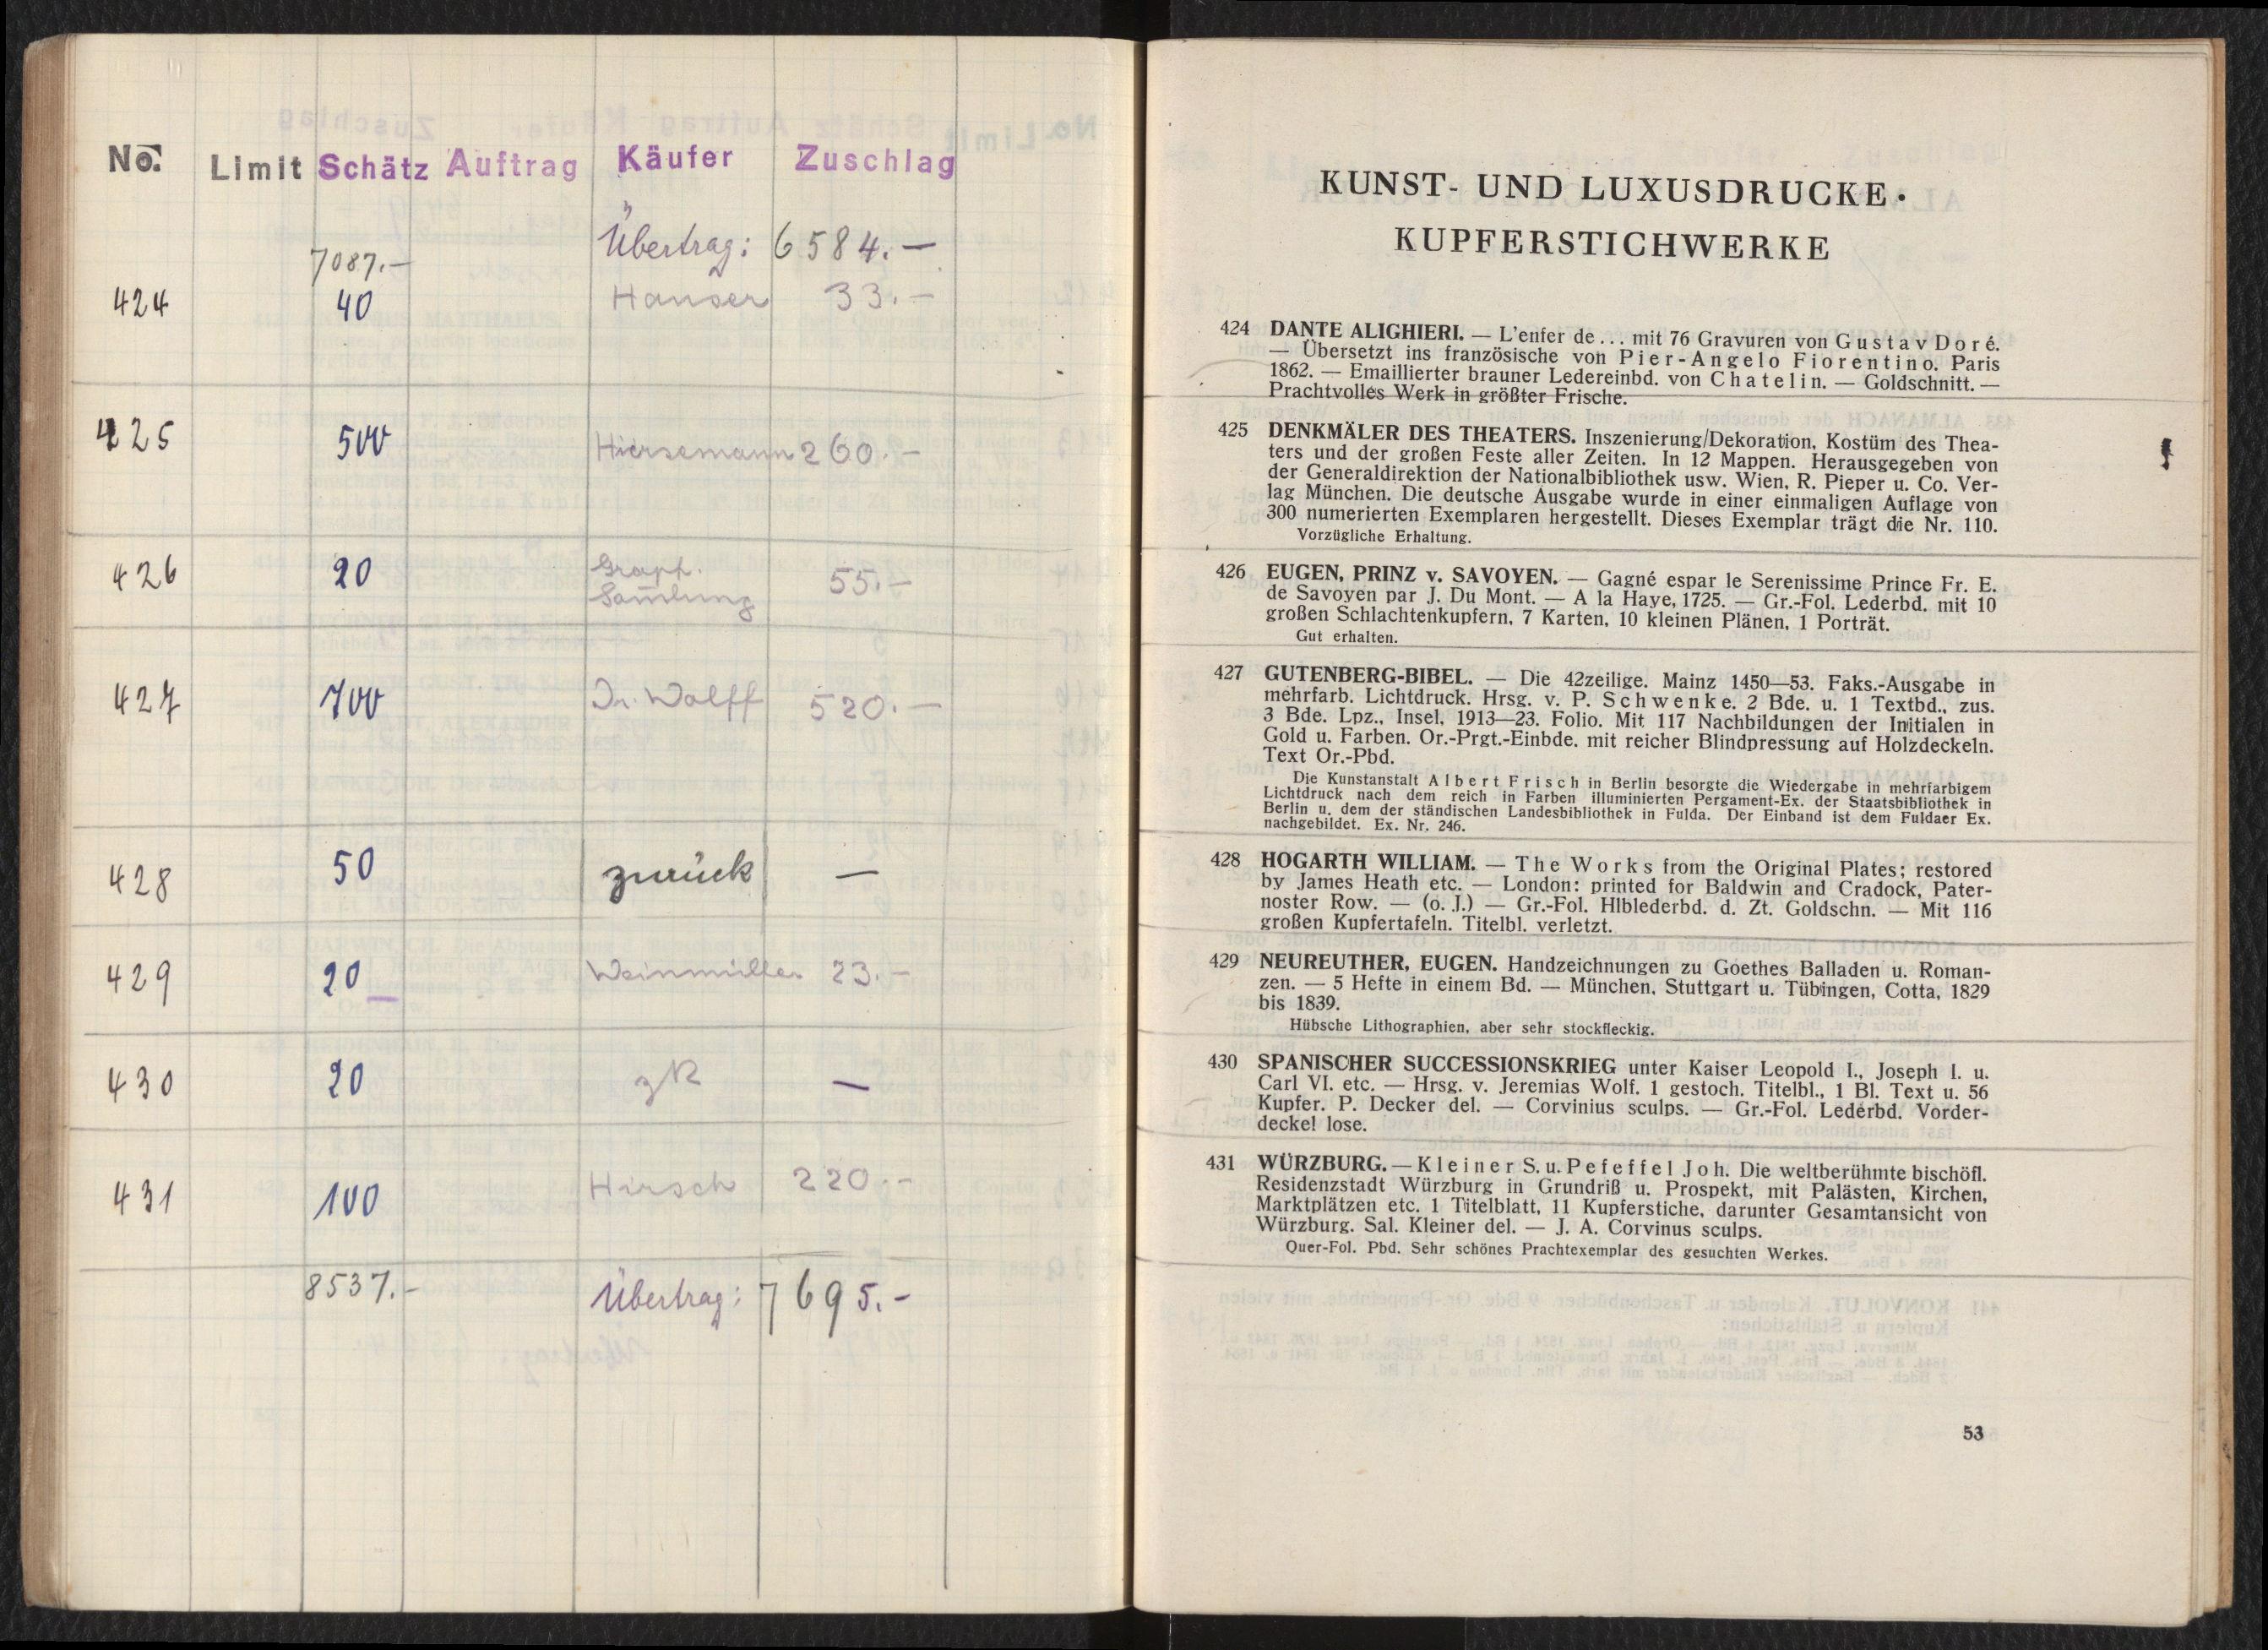 No. Limit Schätz Auftrag Käufer Zuschlag
7087.— Übertrag: 6584.—
424 40 Hanser 33.—
425 500 Hiersemann 260.—
426 20 Graph. Sammlung 55.—
427 700 Dr. Wolff 520.—
428 50 zurück —
429 20 Weinmüller 23.—
430 20 zR —
431 100 Hirsch 220.—
8537.— Übertrag: 7695.—
KUNST- UND LUXUSDRUCKE ·
KUPFERSTICHWERKE
424 DANTE ALIGHIERI. — L'enfer de... mit 76 Gravuren von Gustav Doré.
— Übersetzt ins französische von Pier-Angelo Fiorentino. Paris
1862. — Emaillierter brauner Ledereinbd. von Chatelin. — Goldschnitt. —
Prachtvolles Werk in größter Frische.
425 DENKMÄLER DES THEATERS. Inszenierung/Dekoration, Kostüm des Thea-
ters und der großen Feste aller Zeiten. In 12 Mappen. Herausgegeben von
der Generaldirektion der Nationalbibliothek usw. Wien, R. Pieper u. Co. Ver-
lag München. Die deutsche Ausgabe wurde in einer einmaligen Auflage von
300 numerierten Exemplaren hergestellt. Dieses Exemplar trägt die Nr. 110.
Vorzügliche Erhaltung.
426 EUGEN, PRINZ v. SAVOYEN. — Gagné espar le Serenissime Prince Fr. E.
de Savoyen par J. Du Mont. — A la Haye, 1725. — Gr.-Fol. Lederbd. mit 10
großen Schlachtenkupfern, 7 Karten, 10 kleinen Plänen, 1 Porträt.
Gut erhalten.
427 GUTENBERG-BIBEL. — Die 42zeilige. Mainz 1450—53. Faks.-Ausgabe in
mehrfarb. Lichtdruck. Hrsg. v. P. Schwenke. 2 Bde. u. 1 Textbd., zus.
3 Bde. Lpz., Insel, 1913—23. Folio. Mit 117 Nachbildungen der Initialen in
Gold u. Farben. Or.-Prgt.-Einbde. mit reicher Blindpressung auf Holzdeckeln.
Text Or.-Pbd.
Die Kunstanstalt Albert Frisch in Berlin besorgte die Wiedergabe in mehrfarbigem
Lichtdruck nach dem reich in Farben illuminierten Pergament-Ex. der Staatsbibliothek in
Berlin u. dem der ständischen Landesbibliothek in Fulda. Der Einband ist dem Fuldaer Ex.
nachgebildet. Ex. Nr. 246.
428 HOGARTH WILLIAM. — The Works from the Original Plates; restored
by James Heath etc. — London: printed for Baldwin and Cradock, Pater-
noster Row. — (o. J.) — Gr.-Fol. Hlblederbd. d. Zt. Goldschn. — Mit 116
großen Kupfertafeln. Titelbl. verletzt.
429 NEUREUTHER, EUGEN. Handzeichnungen zu Goethes Balladen u. Roman-
zen. — 5 Hefte in einem Bd. — München, Stuttgart u. Tübingen, Cotta, 1829
bis 1839.
Hübsche Lithographien, aber sehr stockfleckig.
430 SPANISCHER SUCCESSIONSKRIEG unter Kaiser Leopold I., Joseph I. u.
Carl VI. etc. — Hrsg. v. Jeremias Wolf. 1 gestoch. Titelbl., 1 Bl. Text u. 56
Kupfer. P. Decker del. — Corvinius sculps. — Gr.-Fol. Lederbd. Vorder-
deckel lose.
431 WÜRZBURG. — Kleiner S. u. Pefeffel Joh. Die weltberühmte bischöfl.
Residenzstadt Würzburg in Grundriß u. Prospekt, mit Palästen, Kirchen,
Marktplätzen etc. 1 Titelblatt, 11 Kupferstiche, darunter Gesamtansicht von
Würzburg. Sal. Kleiner del. — J. A. Corvinus sculps.
Quer-Fol. Pbd. Sehr schönes Prachtexemplar des gesuchten Werkes.
53